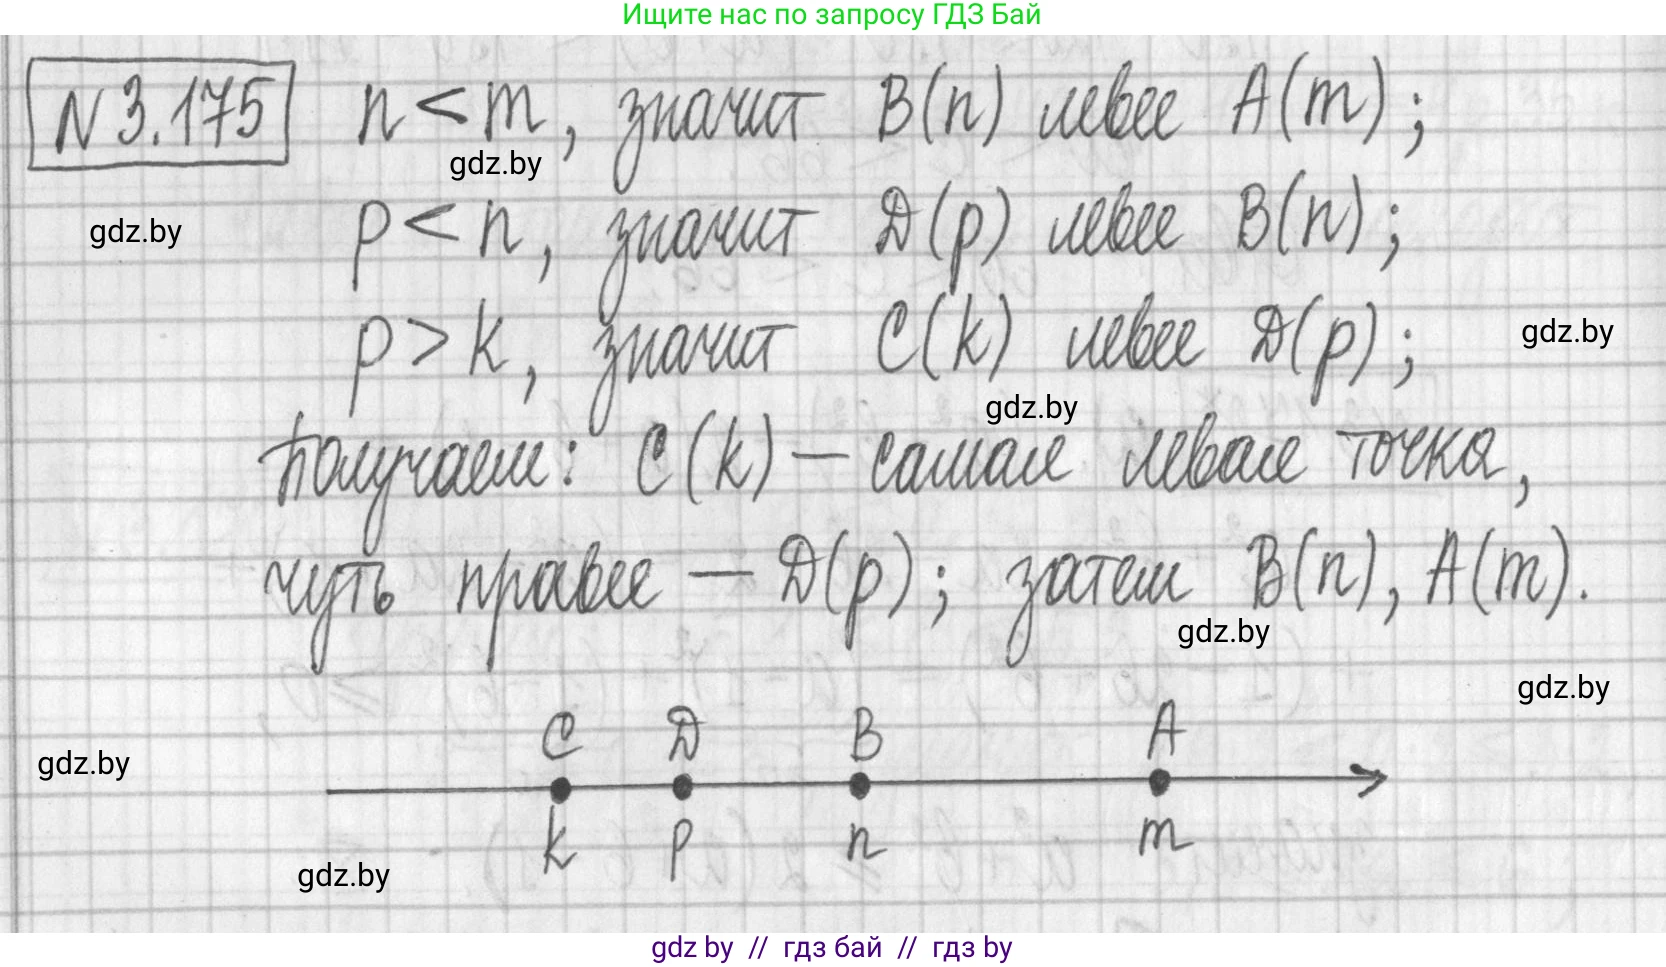 Ищите нас по запросу ГДЗ Бай
N 3.175 n < m, значит B(n) левее A(m);
gdz.by
gdz.by p < n, значит D(p) левее B(n);
p > k, значит C(k) левее D(p); gdz.by
gdz.by
Получаем: C(k) — самая левая точка,
чуть правее — D(p); затем B(n), A(m).
gdz.by
gdz.by
C D B A
gdz.by
k p n m
gdz.by
gdz by // гдз бай // гдз by